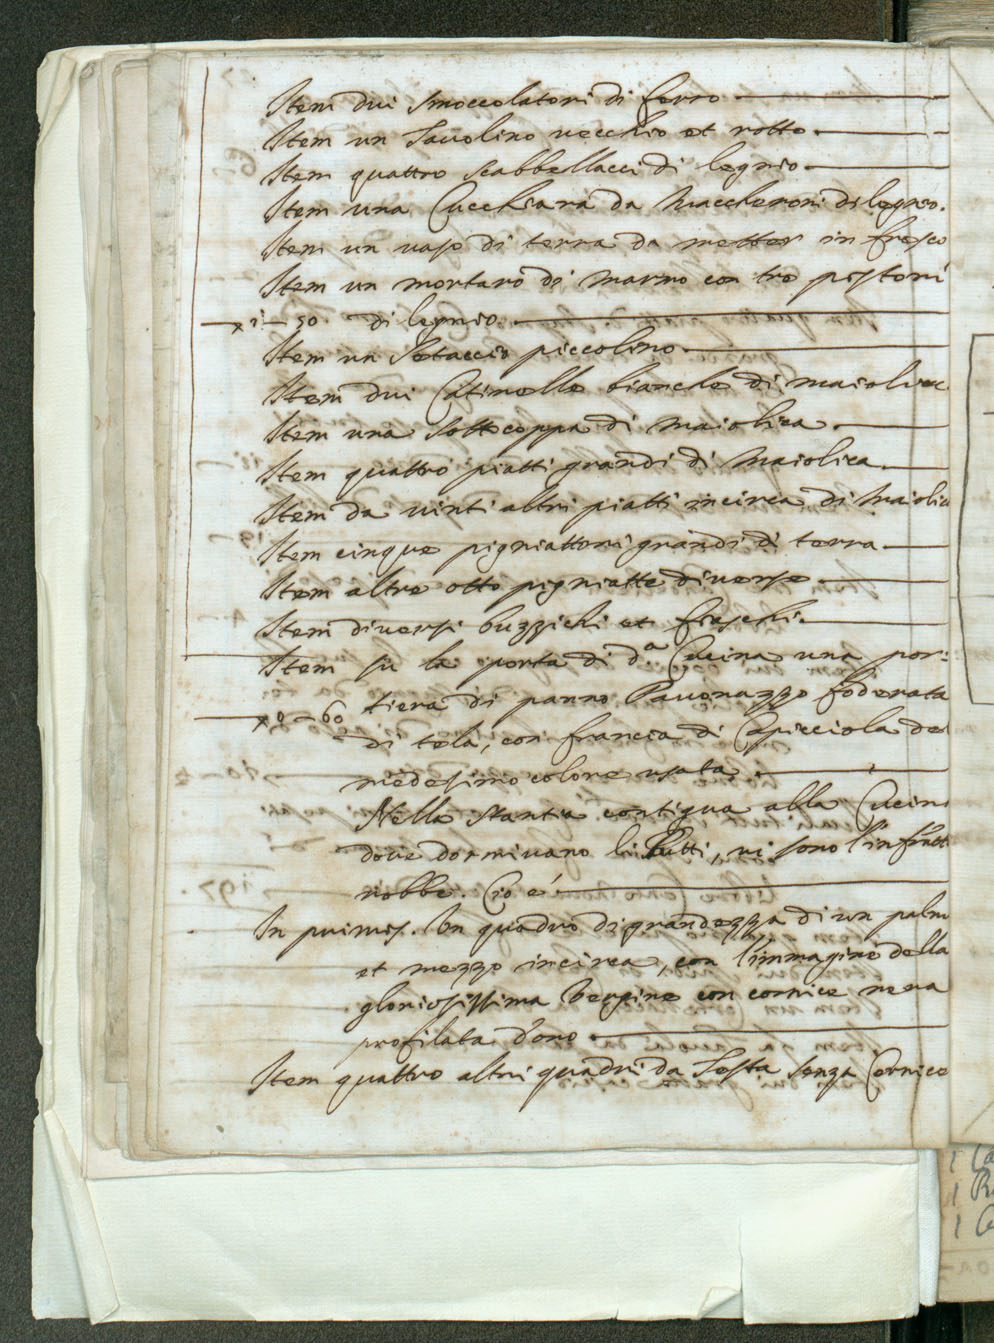 Item dui smoccolatori di ferro
Item un Tavolino vecchio et rotto.
Item quattro scabbellacci di legnio
Item una Cucchiara da Maccheroni di legnio.
Item un vaso di terra da metter in fresco
Item un mortaro di marmo con tre pestoni
50 di legnio
Item un Setaccio piccolino
Item dui Catinelle bianche di maiolica
Item una Sottocoppa di maiolica.
Item quattro piatti grandi di Maiolica
Item da vinti altri piatti incirca di Maiolica
Item cinque pigniattoni grandi di terra
Item altre otto pigniatte diverse
Item diversi buzzichi et fiaschi.
Item su la porta di d.a Cucina una por:
60 tiera di panno Pavonazzo foderata
di tela, con francia di Capicciola del
medesimo colore usata.
Nella stantia contigua alla Cucina
dove dormivano li Putti, vi sono l'infratte
robbe. Cio è
In primis. Un quadro di grandezza di un palmo
et mezzo incirca, con l'immagine della
gloriosissima Vergine con cornice nera
profilata d'oro
Item quattro altri quadri da Testa senza Cornice